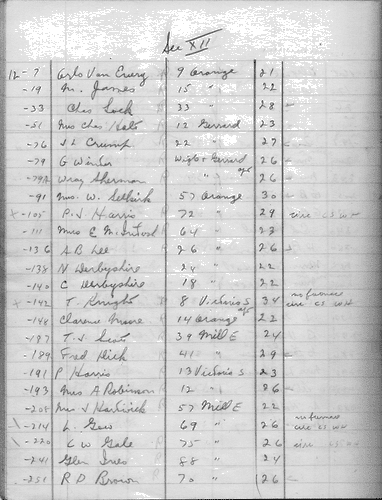 Sec XII
12-7 Arlo Van Every 9 Orange 21
-19 M. James 15 " 22
-33 Chas Lock 33 " 28
-51 Mrs Chas Hato 12 Gerrard 23
-76 J L Crump 22 " 27
-79 G Winter Wigle & Gerrard apt 26
-79A Wray Sherman " 26
-91 Mrs. W. Selkirk 57 Orange 30
x -105 P. J Harris 72 " 29 circ CS WH
-111 Mrs E McIntosh 64 " 22
-136 A B Lee 26 " 26
-138 N Derbyshire 24 " 22
-140 C Derbyshire 18 " 22
x -142 T. Knight 8 Victoria S apt 34 no furnace circ CS WH
-148 Clarence Moore 14 Orange 22
-187 T. J Scott 39 Mill E 24
-189 Fred Hick 41 " 29
-191 P Harris 13 Victoria S 23
-193 Mrs A Robinson 12 " 26
-208 Mrs J Hartwick 57 Mill E 22
\ -214 L. Gew 69 " 26 no furnace circ CS WH
\ -220 C W Gale 75 " 26 circ CS WH
-241 Glen Ives 88 " 24
-251 R D Brown 70 " 26